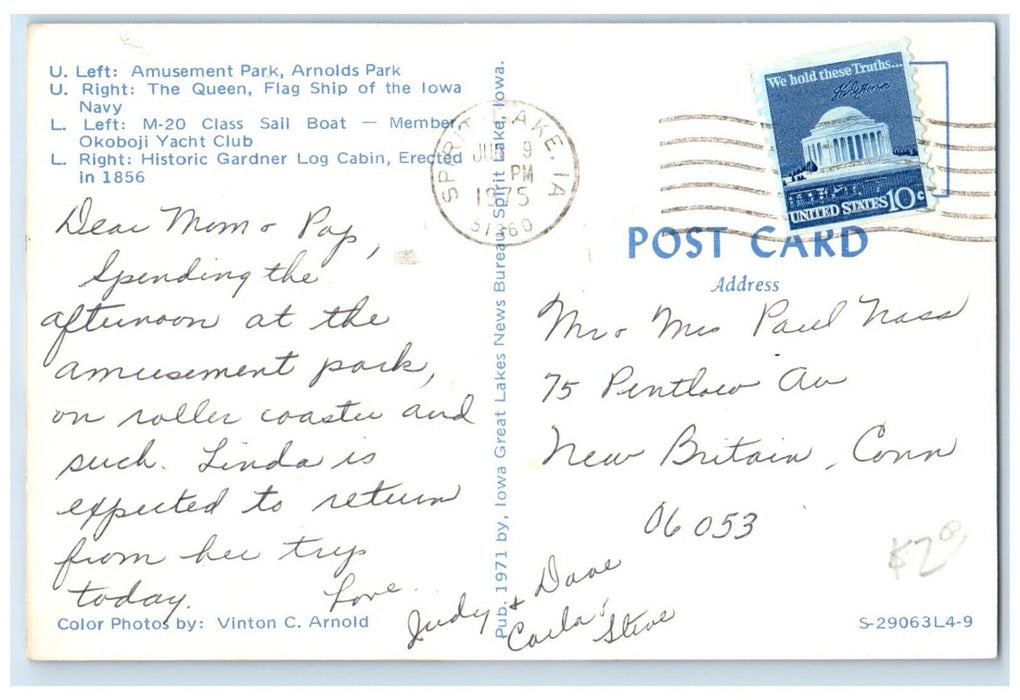 U. Left: Amusement Park, Arnolds Park
U. Right: The Queen, Flag Ship of the Iowa
Navy
L. Left: M-20 Class Sail Boat — Member,
Okoboji Yacht Club
L. Right: Historic Gardner Log Cabin, Erected
in 1856
Dear Mom & Pop,
Spending the
afternoon at the
amusement park,
on roller coaster and
such. Linda is
expected to return
from her trip
today. Love.
Judy & Dave
Carla & Steve
Color Photos by: Vinton C. Arnold
Pub. 1971 by, Iowa Great Lakes News Bureau, Spirit Lake, Iowa.
SPIRIT LAKE, IA
9
PM
1975
51360
We hold these Truths...
Th Jefferson
UNITED STATES 10c
POST CARD
Address
Mr & Mrs Paul Nass
75 Pentlow Av
New Britain, Conn
06053
S-29063L4-9